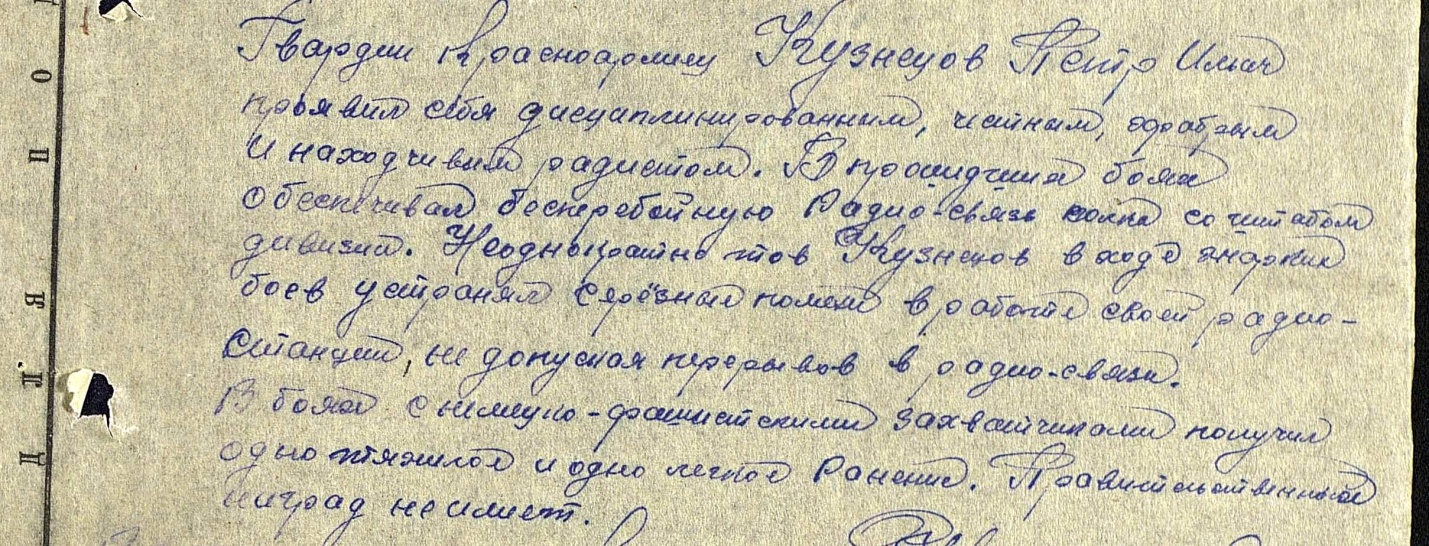 Гвардии Красноармеец Кузнецов Пётр Ильич
проявил себя дисциплинированным, честным, храбрым
и находчивым радистом. В прошедших боях
обеспечивал бесперебойную Радио-связь полка со штабом
дивизии. Неоднократно тов Кузнецов в ходе жарких
боев устранял серёзные помехи в работе своей радио-
станции, не допуская перерывов в радио-связи.
В боях с немецко-фашистскими захватчиками получил
одно тяжелое и одно легкое Ранение. Правительственных
наград не имеет.
Д Л Я П О